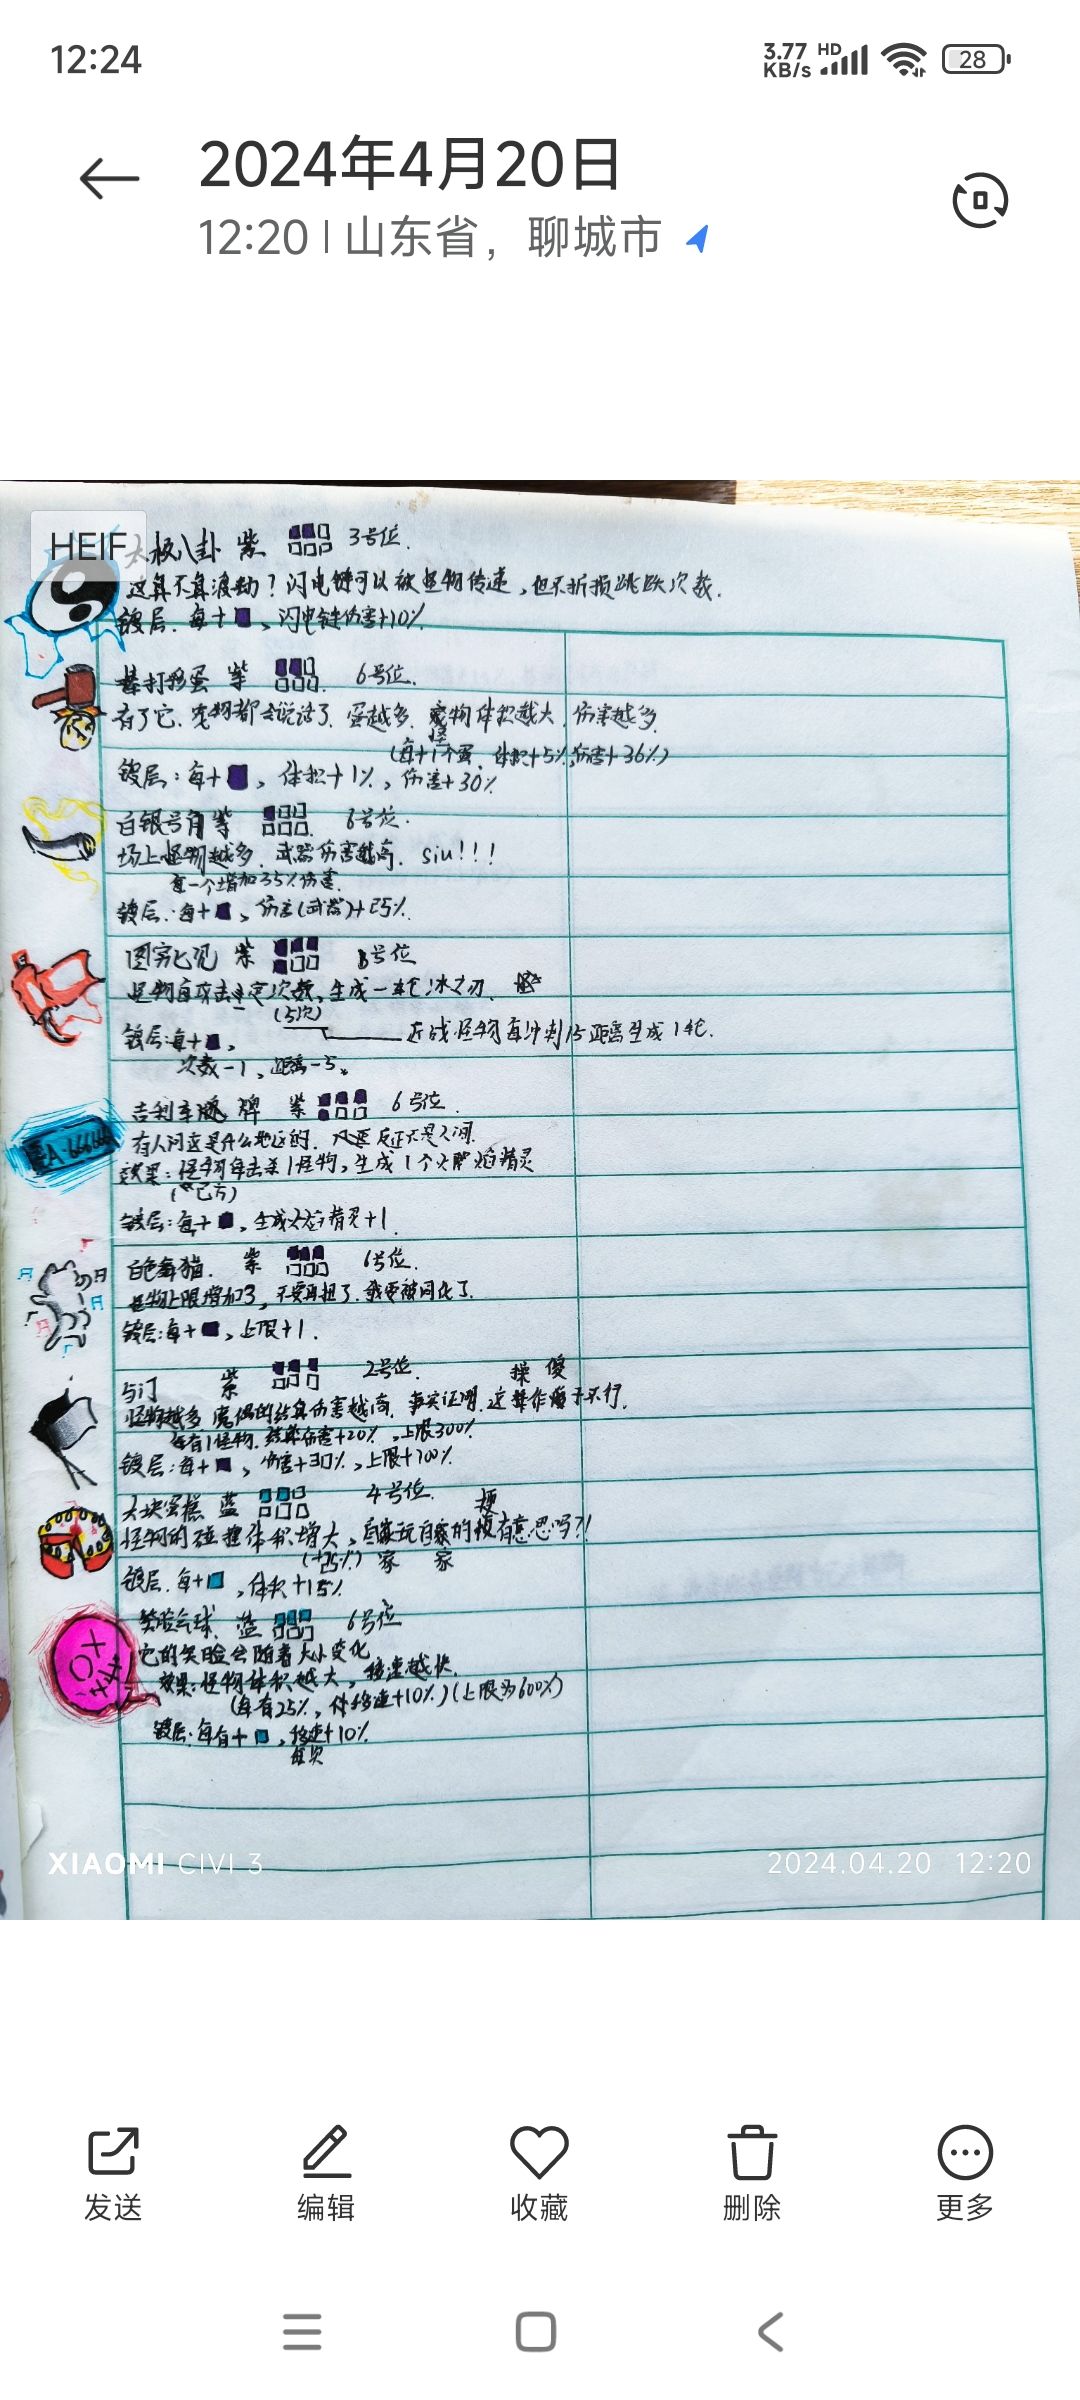 12:24
3.77 KB/s HD 28
2024年4月20日
12:20 | 山东省，聊城市
HEIF
太极八卦 紫 3号位.
这真不真波动？闪电链可以被怪物传递，但不折损跳跃次数.
镀层.每+ ，闪电链伤害+10%.
棒打 蛋 紫 6号位.
有了它. 物都会说话了. 蛋越多. 怪物体积越大. 伤害越多.
(每+1个蛋. 体积+5%,伤害+36%)
镀层：每+ ，体积+1%，伤害+30%
白银号角 紫 6号位.
场上怪物越多. 武器伤害越高. siu!!!
每一个增加35%伤害.
镀层.：每+ ，伤害(武器)+25%.
图穷匕见 紫 号位
怪物每攻击一定次数，生成一轮冰之刃.
(5次)
近战怪物每冲刺15距离生成1轮.
镀层:每+ ，
次数-1，距离-5。
吉利车 牌 紫 6号位.
有人问这是什么地区的. 反正不是人间.
效果：怪物每击杀1怪物，生成1个火 焰精灵
(己方)
镀层：每+ ，生成火焰精灵+1.
白色舞猫. 紫 6号位.
怪物上限增加3，不要再扭了.我要被同化了.
镀层:每+ ，上限+1.
与门 紫 2号位.
操 傻
怪物越多. 的结算伤害越高. 事实证明.这 作 子不行.
每有1怪物. 结算伤害+20%，上限300%.
镀层：每+ ，伤害+30%，上限+100%.
大块蛋糕 蓝 4号位.
梗
怪物的碰撞体积增大，自 玩自 的 有意思吗?!
(+25%) 家 家
镀层.每+ ，体积+15%
笑脸气球. 蓝 6号位
它的笑脸会随着大小变化
效果:怪物体积越大，移速越快.
(每有25%，移速+10%)(上限为600%)
镀层.每有+ ，移速+10%
每次
XIAOMI CIVI 3
2024.04.20 12:20
发送 编辑 收藏 删除 更多